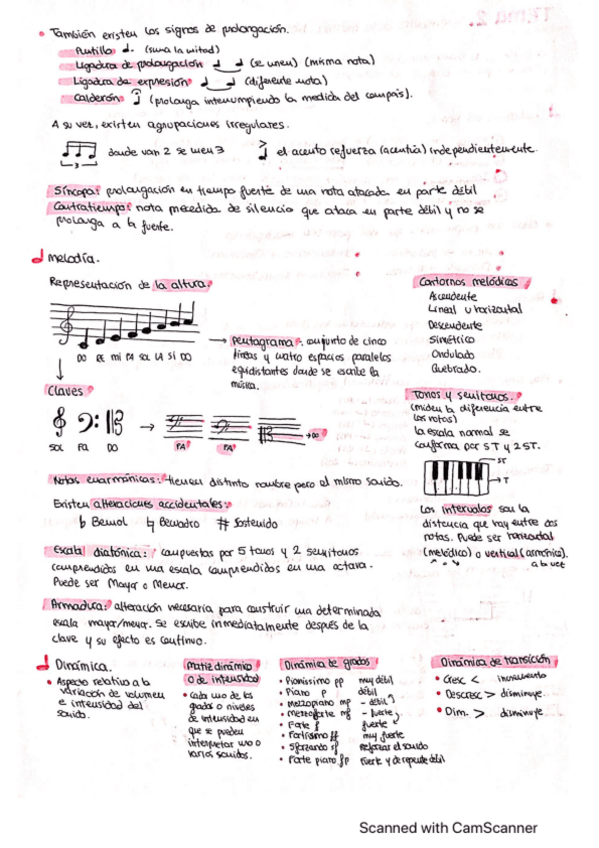 También existen los signos de prolongación.
Puntillo (suma la mitad)
Ligadura de prolongación (se unen) (misma nota)
Ligadura de expresión (diferente nota)
Calderón (prolonga interrumpiendo la medida del compás).
A su vez, existen agrupaciones irregulares.
3 donde van 2 se meten 3
el acento refuerza (acentúa) independientemente.
Síncopa: prolongación en tiempo fuerte de una nota atacada en parte débil
Contratiempo: nota precedida de silencio que ataca en parte débil y no se
prolonga a la fuerte.
Melodía.
Representación de la altura
DO RE MI FA SOL LA SI DO
→ Pentagrama: conjunto de cinco
líneas y cuatro espacios paralelos
equidistantes donde se escribe la
música.
Contornos melódicos
Ascendente
Lineal u horizontal
Descendente
Simétrico
Ondulado
Quebrado.
Claves
SOL FA DO → FA FA → DO
Tonos y semitonos.
(miden la diferencia entre
las notas)
la escala normal se
conforma por 5T y 2ST.
→ ST
→ T
Notas enarmónicas: tienen distinto nombre pero al mismo sonido.
Existen alteraciones accidentales:
♭ Bemol ♮ Becuadro # Sostenido
Los intervalos son la
distancia que hay entre dos
notas. Puede ser horizontal
(melódico) o vertical (armónico).
a la vez
Escala diatónica: compuestas por 5 tonos y 2 semitonos
comprendidos en una escala comprendidos en una octava.
Puede ser Mayor o Menor.
Armadura: alteración necesaria para construir una determinada
escala mayor/menor. Se escribe inmediatamente después de la
clave y su efecto es continuo.
Dinámica.
Aspecto relativo a la
variación de volumen
e intensidad del
sonido.
Matiz dinámico
o de intensidad
Cada uno de los
grados o niveles
de intensidad en
que se pueden
interpretar uno o
varios sonidos.
Dinámica de grados
Pianissimo pp muy débil
Piano p débil
Mezzopiano mp - débil
Mezzoforte mf - fuerte
Forte f fuerte
Fortissimo ff muy fuerte
Sforzando sf reforzar el sonido
Forte piano fp fuerte y de repente débil
Dinámica de transición
Cresc < incremento
Descresc > disminuye
Dim. > disminuye
Scanned with CamScanner